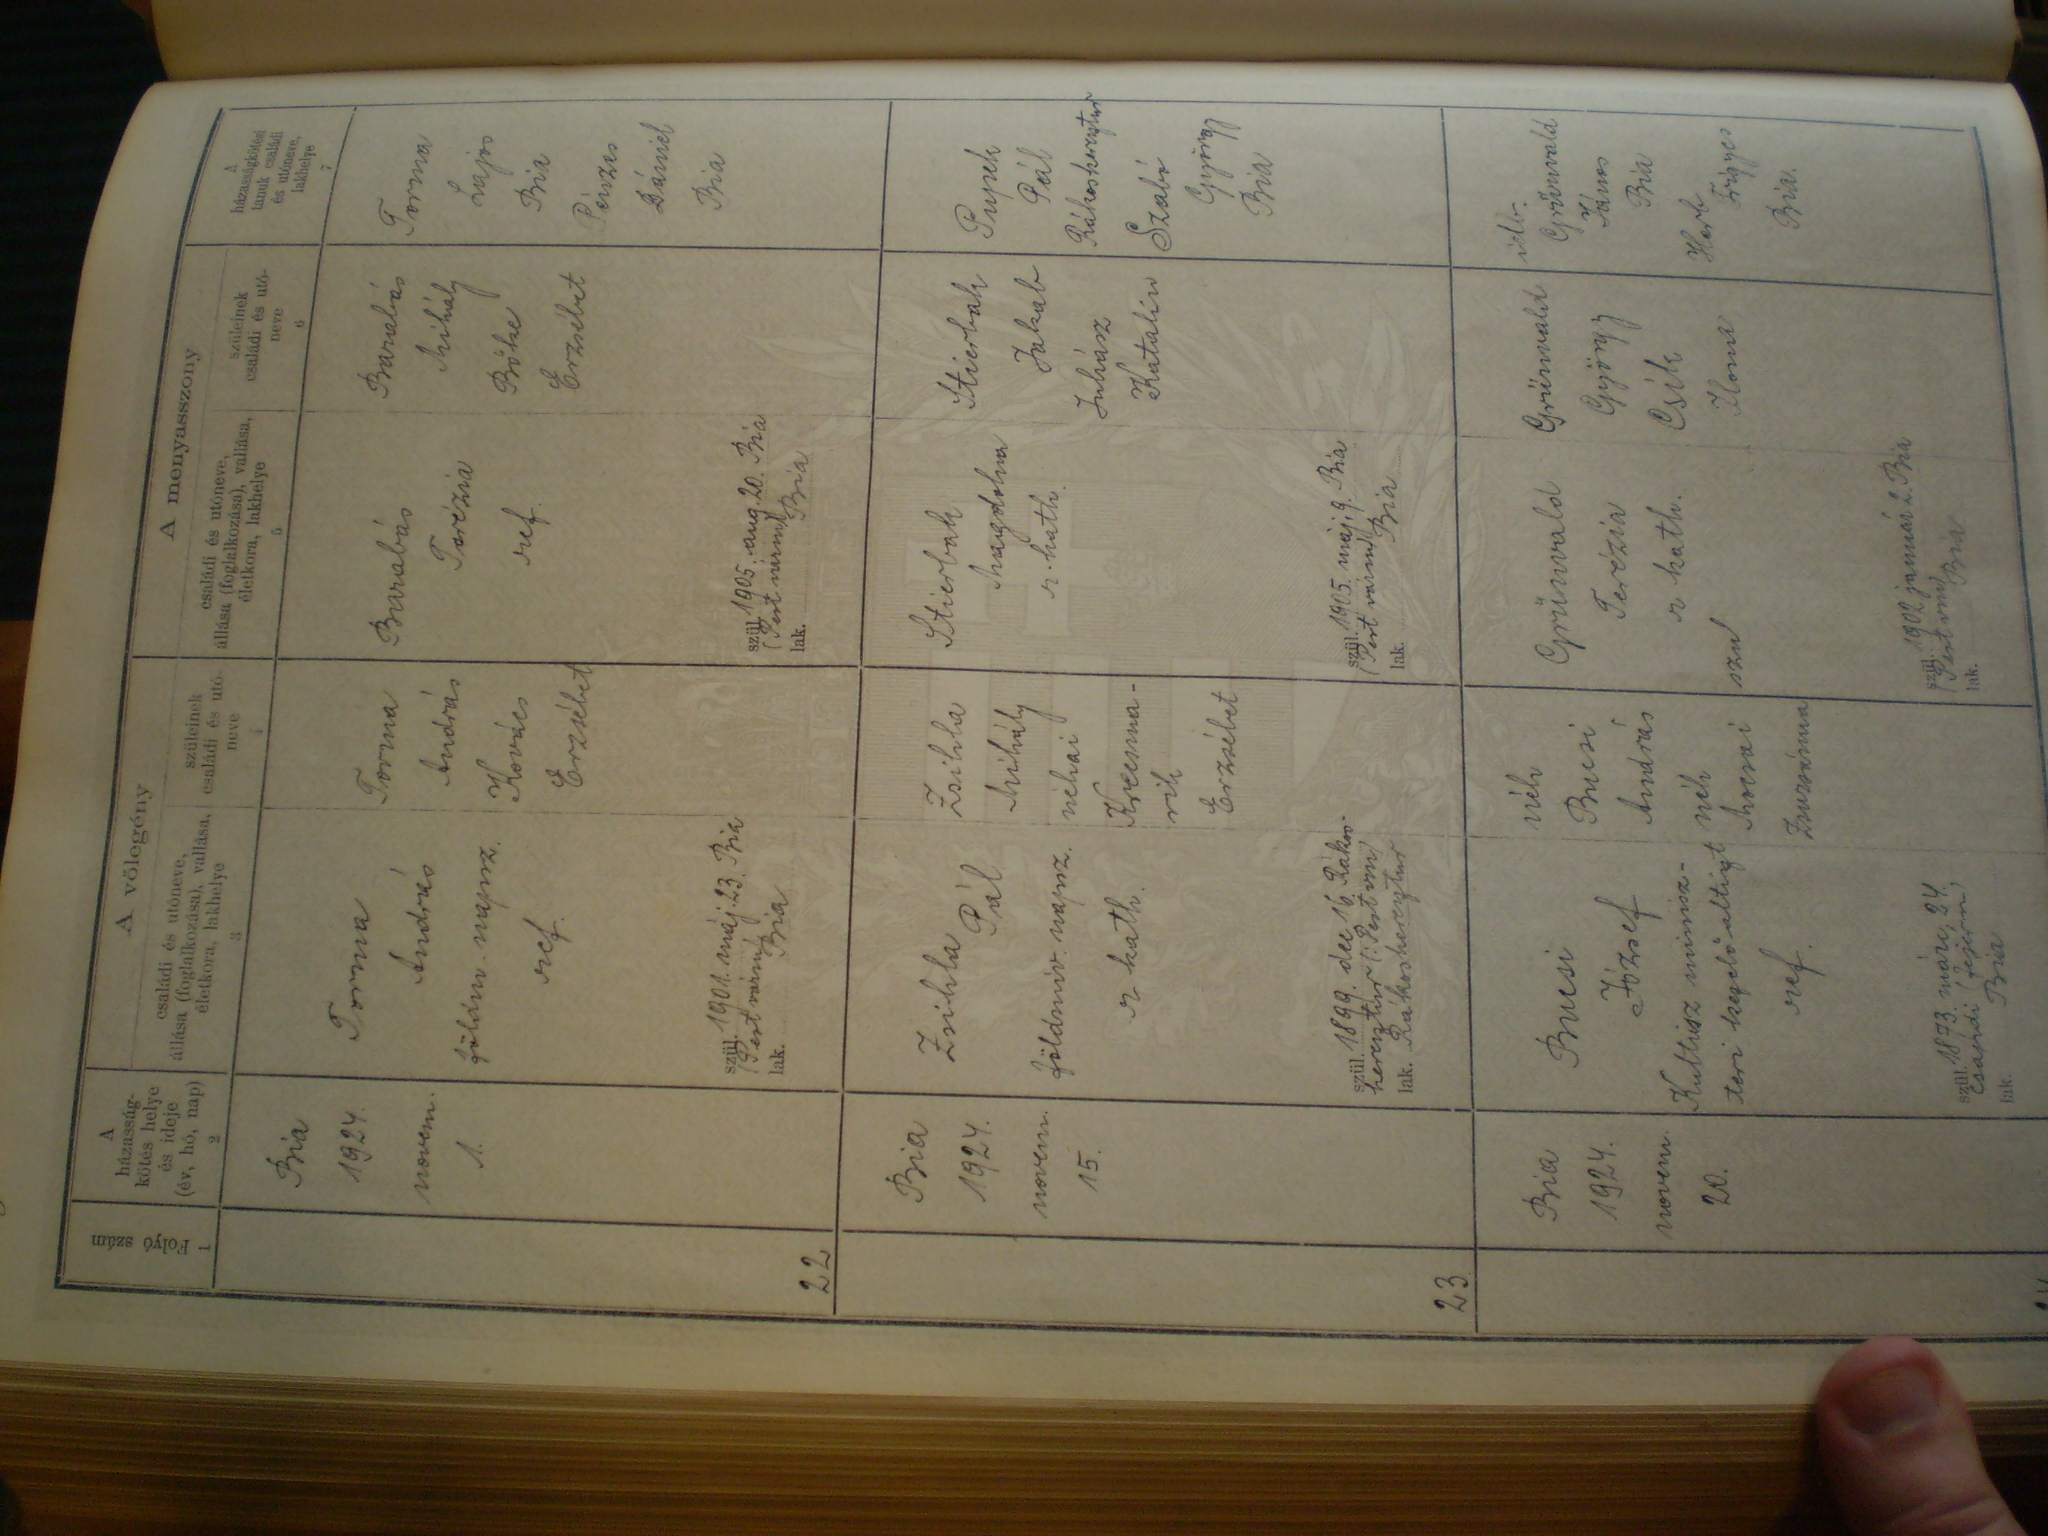 1
Folyó
szám
A
házasság-
kötés helye
és ideje
(év, hó, nap)
2
A vőlegény
családi és utóneve,
állása (foglalkozása), vallása,
életkora, lakhelye
3
szüleinek
családi és utó-
neve
4
A menyasszony
családi és utóneve,
állása (foglalkozása), vallása,
életkora, lakhelye
5
szüleinek
családi és utó-
neve
6
A
házasságkötési
tanuk családi
és utóneve,
lakhelye
7
22
Bia
1924.
novem.
1.
Torma
András
földmív. napsz.
ref.
szül. 1901. máj. 23. Bia
(Pest várm)
lak. Bia
Torma
András
Kovács
Erzsébet
Barabás
Terézia
ref.
szül. 1905. aug. 20. Bia
(Pest várm)
lak. Bia
Barabás
Mihály
Bőke
Erzsébet
Torma
Lajos
Bia
Pénzes
Dániel
Bia
23
Bia
1924.
novem.
15.
Zsihla
Pál
földmiv. napsz.
r. kath.
szül. 1899. dec 16. Rákos-
keresztur (Pest vm)
lak. Rákoskeresztur
Zsihla
Mihály
néhai
Krecsma-
rik
Erzsébet
Stierbah
Magdolna
r. kath.
szül. 1905. máj. 9. Bia
(Pest várm)
lak. Bia
Stierbah
Jakab
Juhász
Katalin
Pupek
Pál
Rákoskeresztur
Szabó
György
Bia
Bia
1924.
novem.
20.
Bucsi
József
Kultusz minisz-
teri kezelő altiszt
ref.
szül. 1873. márc. 24.
(Fejérm)
lak. Bia
néh
Bucsi
András
néh
Mocsai
Zsuzsánna
Grünwald
Terézia
r. kath.
szül. 1902 január 2. Bia
(Pest várm)
lak. Bia
Grünwald
György
Csík
Ilona
idb.
Grünwald
János
Bia
Herb
Frigyes
Bia.